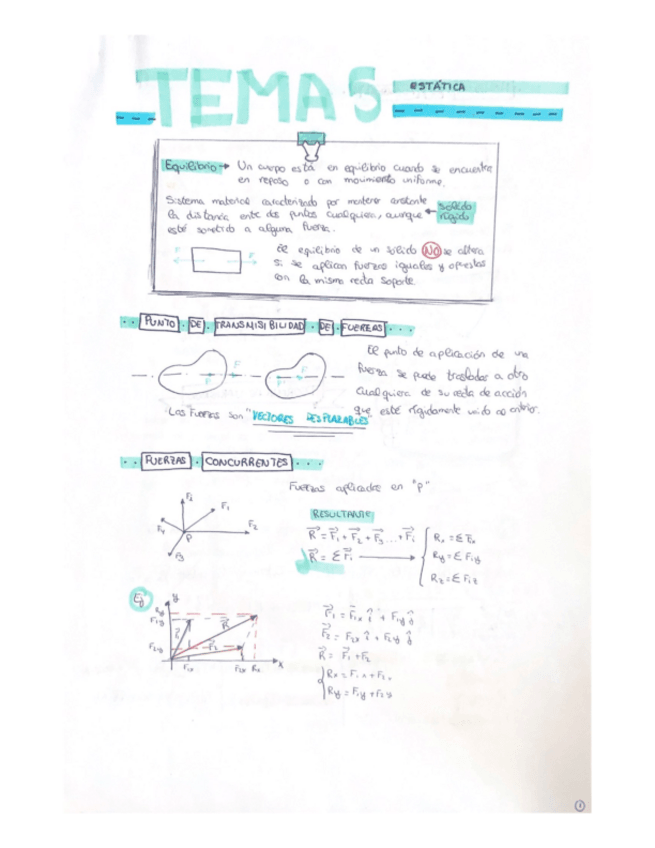 TEMA 5
ESTÁTICA
Equilibrio → Un cuerpo está en equilibrio cuando se encuentra
en reposo o con movimiento uniforme.
Sistema material caracterizado por mantener constante
la distancia entre dos puntos cualquiera, aunque ← sólido
esté sometido a alguna fuerza. rígido
El equilibrio de un sólido NO se altera
F F
si se aplican fuerzas iguales y opuestas
con la misma recta soporte.
PUNTO DE TRANSMISIBILIDAD DE FUERZAS
El punto de aplicación de una
fuerza se puede trasladar a otro
F F
cualquiera de su recta de acción
que esté rígidamente unido al anterior.
Las fuerzas son "VECTORES DESPLAZABLES"
FUERZAS CONCURRENTES
Fuerzas aplicadas en "P"
F₁
F₂
F₄
P
F₃
RESULTANTE
R = F₁ + F₂ + F₃ ... + Fᵢ
R = Σ Fᵢ
Rx = Σ Fix
Ry = Σ Fiy
Rz = Σ Fiz
Ej
y
Ry
F₁y
R
F₂y
F₁x F₂x Rx x
F₁ = F₁x î + F₁y ĵ
F₂ = F₂x î + F₂y ĵ
R = F₁ + F₂
Rx = F₁x + F₂x
Ry = F₁y + F₂y
1